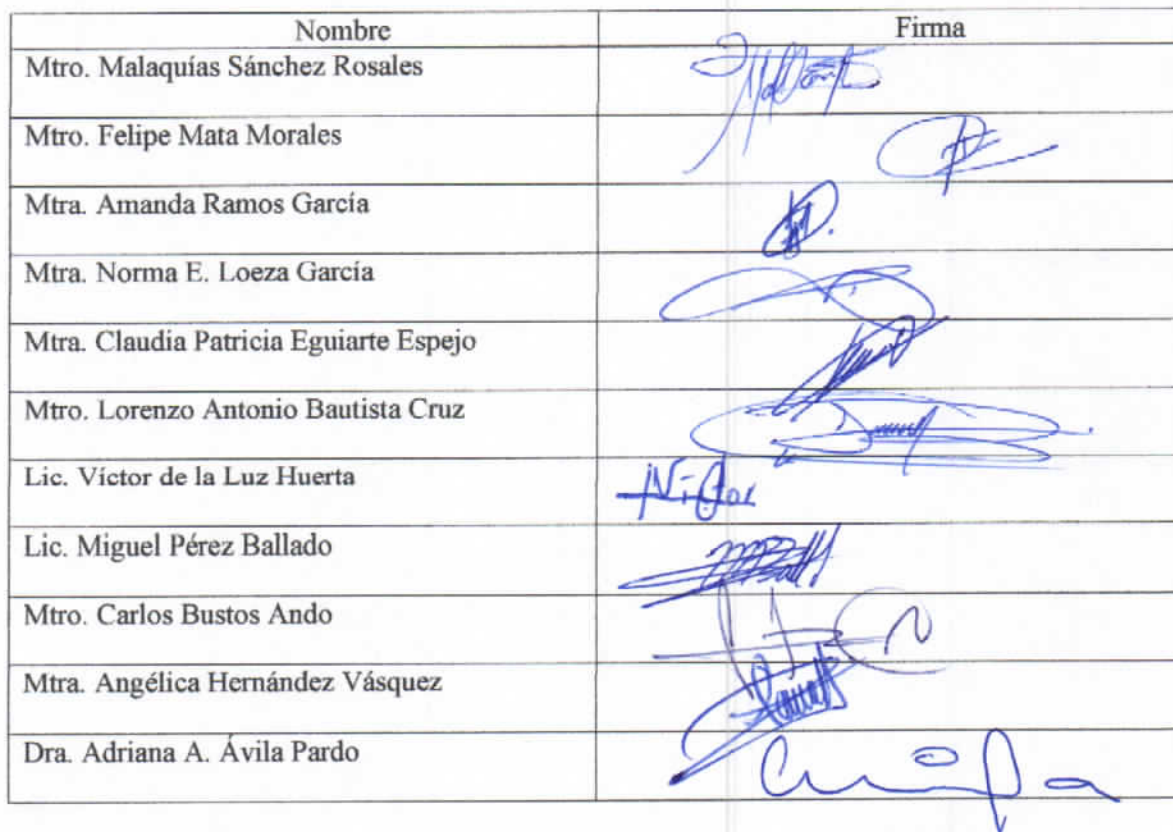 Nombre Firma
Mtro. Malaquías Sánchez Rosales
Mtro. Felipe Mata Morales
Mtra. Amanda Ramos García
Mtra. Norma E. Loeza García
Mtra. Claudia Patricia Eguiarte Espejo
Mtro. Lorenzo Antonio Bautista Cruz
Lic. Víctor de la Luz Huerta
Lic. Miguel Pérez Ballado
Mtro. Carlos Bustos Ando
Mtra. Angélica Hernández Vásquez
Dra. Adriana A. Ávila Pardo